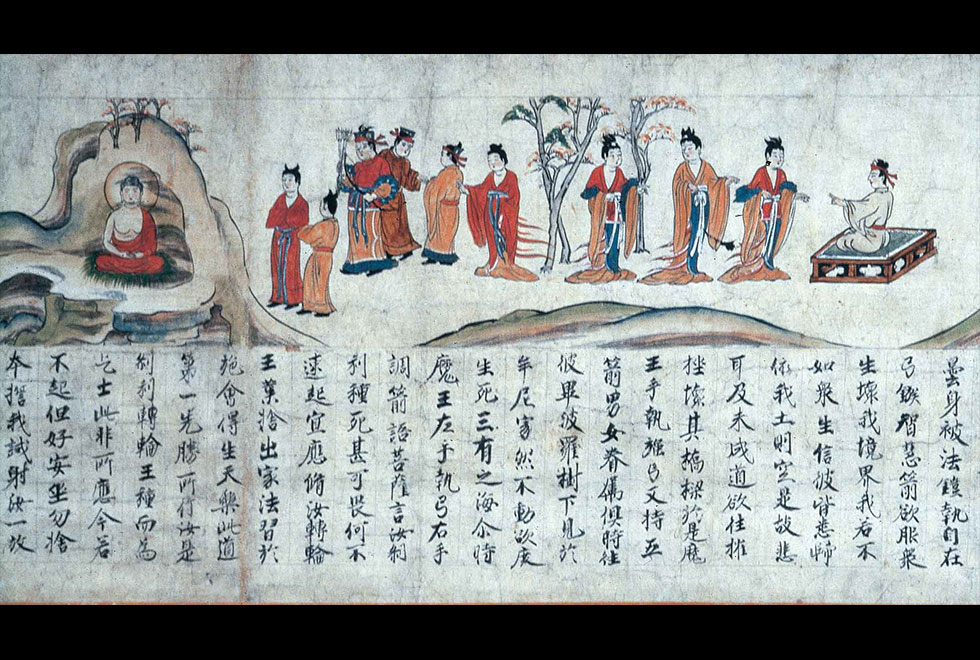 曇身被法鎧執自在
弓鏃智慧箭欲服眾
生壞我境界我若不
如衆生信彼皆悉歸
依我土則空是故悲
耳及未成道欲往摧
挫壞其橋樑於是魔
王手執強弓又持五
箭男女眷屬俱時往
彼畢波羅樹下見於
牟尼寂然不動欲度
生死三有之海尒時
魔王左手執弓右手
調箭語菩薩言汝剎
利種死甚可畏何不
速起宜應脩汝轉輪
王業捨出家法習於
施會得生天樂此道
第一先勝所行汝是
剎利轉輪王種而為
乞士此非所應今若
不起但好安坐勿捨
本誓我試射汝一放